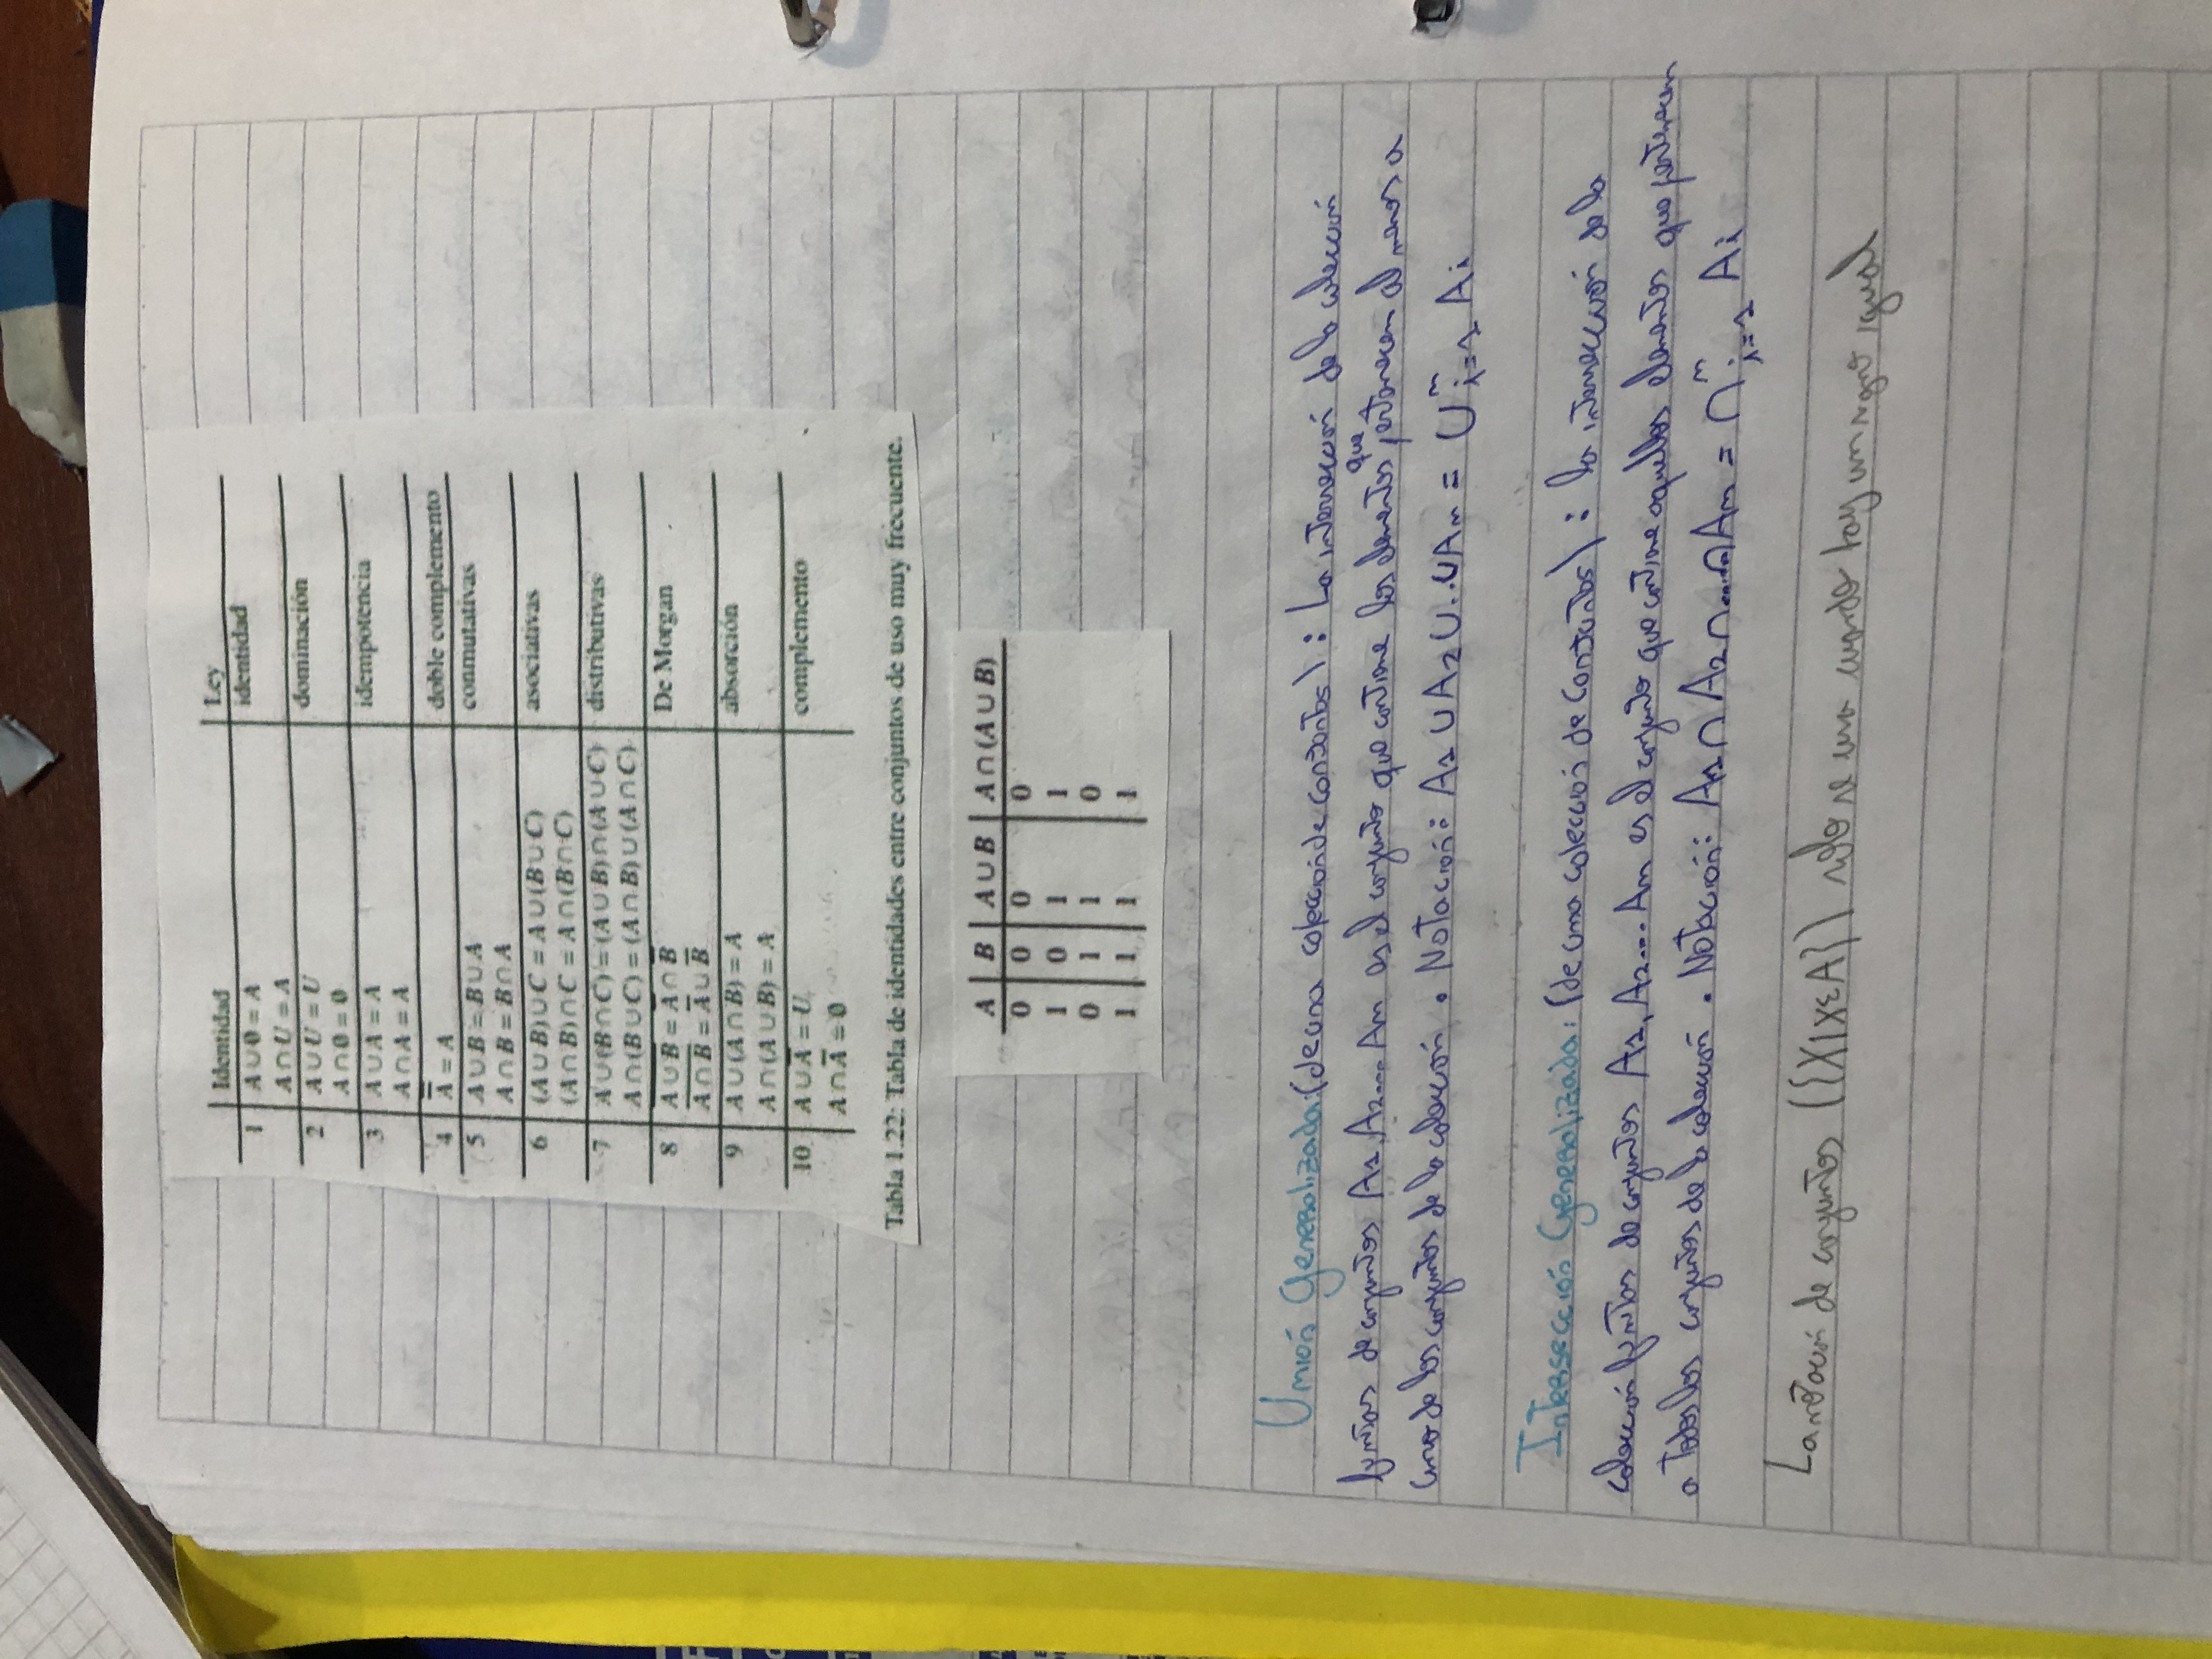 Identidad Ley
1 A∪∅ = A identidad
A∩U = A
2 A∪U = U dominación
A∩∅ = ∅
3 A∪A = A idempotencia
A∩A = A
4 A̿ = A doble complemento
5 A∪B = B∪A conmutativas
A∩B = B∩A
6 (A∪B)∪C = A∪(B∪C) asociativas
(A∩B)∩C = A∩(B∩C)
7 A∪(B∩C) = (A∪B)∩(A∪C) distributivas
A∩(B∪C) = (A∩B)∪(A∩C)
8 \overline{A∪B} = \overline{A}∩\overline{B} De Morgan
\overline{A∩B} = \overline{A}∪\overline{B}
9 A∪(A∩B) = A absorción
A∩(A∪B) = A
10 A∪\overline{A} = U complemento
A∩\overline{A} = ∅
Tabla 1.22: Tabla de identidades entre conjuntos de uso muy frecuente.
A B A∪B A∩(A∪B)
0 0 0 0
1 0 1 1
0 1 1 0
1 1 1 1
Unión Generalizada: (de una colección de conjuntos) : La intersección de la colección
finitas de conjuntos A1, A2... An es el conjunto que contiene los elementos que pertenecen al menos a
uno de los conjuntos de la colección. Notación: A1∪A2∪..∪An = ∪ⁿi=1 Ai
Intersección Generalizada: (de una colección de Conjuntos) : la intersección de la
colección finitas de conjuntos A1, A2... An es el conjunto que contiene aquellos elementos que pertenecen
a todos los conjuntos de la colección. Notación: A1∩A2∩....∩An = ∩ⁿi=1 Ai
La notación de conjuntos ({X/x∈A}) solo se usa cuando hay un signo igual